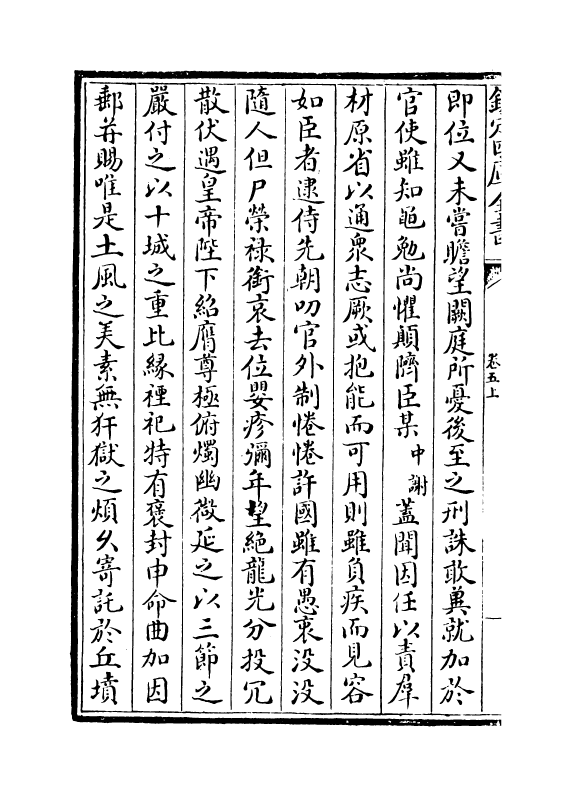 欽定四庫全書
卷五上
即位又未嘗瞻望闕庭所憂後至之刑誅敢兾就加於
官使雖知黽勉尚懼顛隮臣某中謝蓋聞因任以責羣
材原省以通衆志厥或抱能而可用則雖負疾而見容
如臣者逮侍先朝叨官外制惓惓許國雖有愚衷没没
隨人但尸榮禄銜哀去位嬰疹彌年望絶龍光分投冗
散伏遇皇帝陛下紹膺尊極俯燭幽微延之以三節之
嚴付之以十城之重比縁禋祀特有襃封申命曲加因
郵并賜唯是土風之美素無犴獄之煩久寄託於丘墳